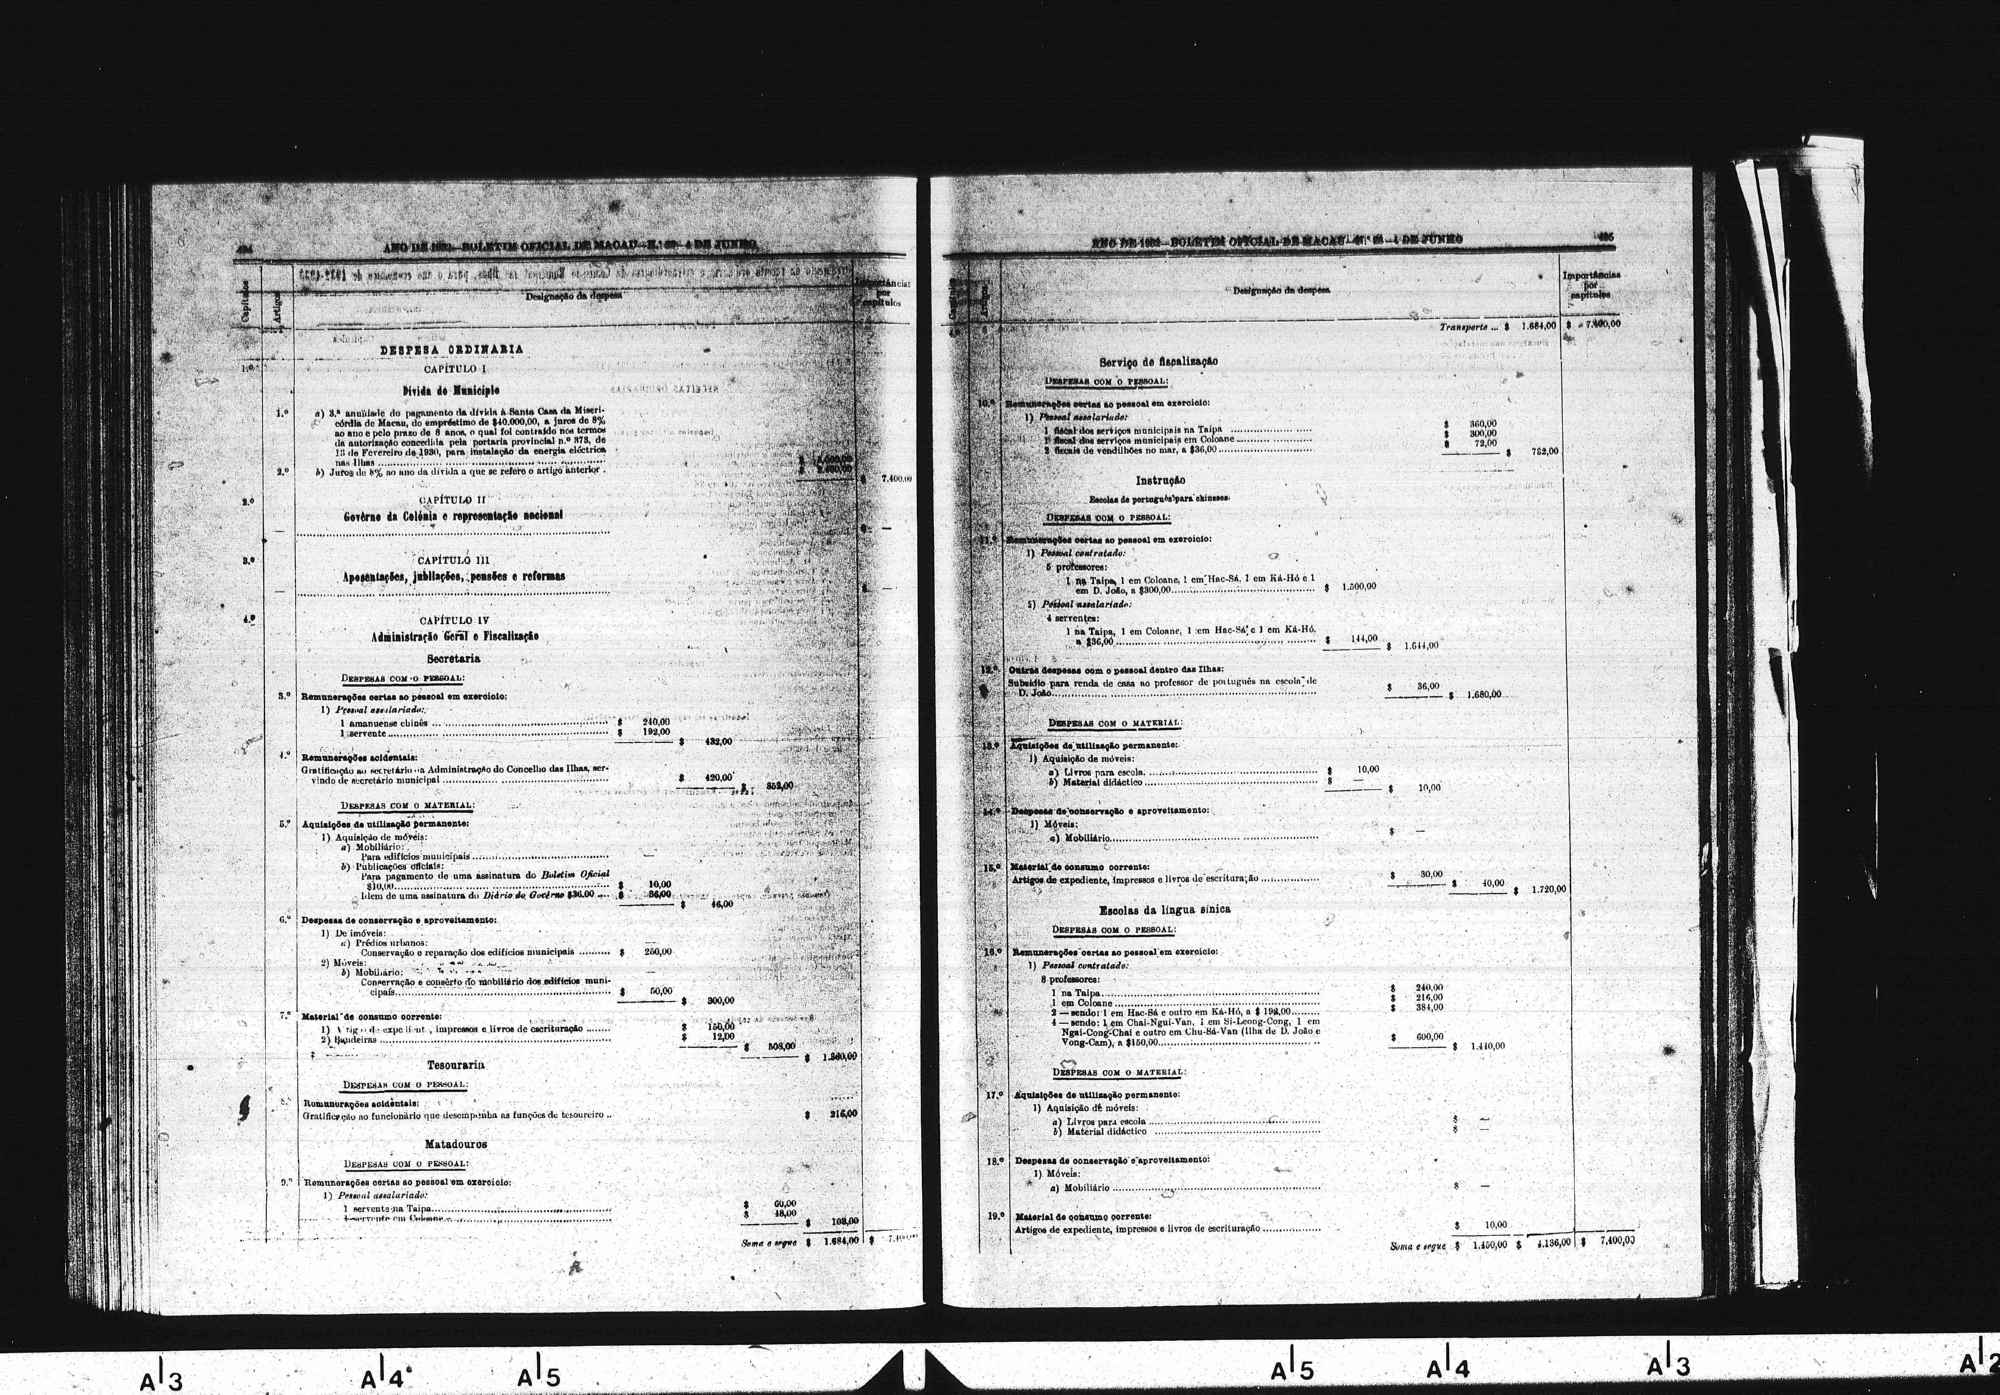 494
ANO DE 1932—BOLETIM OFICIAL DE MACAU—N.º 23—4 DE JUNHO
Capítulos
Artigos
Designação da despesa
Importâncias
por
capítulos
DESPESA ORDINARIA
1.º
CAPÍTULO I
Dívida do Município
1.º a) 3.ª anuidade do pagamento da dívida à Santa Casa da Miseri-
córdia de Macau, do empréstimo de $40.000,00, a juros de 8%
ao ano e pelo prazo de 8 anos, o qual foi contraído nos termos
da autorização concedida pela portaria provincial n.º 373, de
15 de Fevereiro de 1930, para instalação da energia eléctrica
nas Ilhas
2.º b) Juros de 8% ao ano da dívida a que se refere o artigo anterior .
$ 7.400,00
2.º
CAPÍTULO II
Govêrno da Colónia e representação nacional
— $ —
3.º
CAPÍTULO III
Aposentações, jubilações, pensões e reformas
— $ —
4.º
CAPÍTULO IV
Administração Geral e Fiscalização
Secretaria
DESPESAS COM O PESSOAL:
3.º Remunerações certas ao pessoal em exercício:
1) Pessoal assalariado:
1 amanuense chinês ... $ 240,00
1 servente ... $ 192,00
$ 432,00
4.º Remunerações acidentais:
Gratificação ao secretário da Administração do Concelho das Ilhas, ser-
vindo de secretário municipal ... $ 420,00
$ 852,00
DESPESAS COM O MATERIAL:
5.º Aquisições de utilização permanente:
1) Aquisição de móveis:
a) Mobiliário:
Para edifícios municipais ... —
b) Publicações oficiais:
Para pagamento de uma assinatura do Boletim Oficial
$10,00 ... $ 10,00
Idem de uma assinatura do Diário do Govêrno $36.00 ... $ 36,00
$ 46,00
6.º Despesas de conservação e aproveitamento:
1) De imóveis:
a) Prédios urbanos: —
Conservação e reparação dos edifícios municipais ... $ 250,00
2) Móveis:
b) Mobiliário: —
Conservação e consêrto do mobiliário dos edifícios muni-
cipais ... $ 50,00
$ 300,00
7.º Material de consumo corrente:
1) Artigos de expediente, impressos e livros de escrituração ... $ 150,00
2) Bandeiras ... $ 12,00
$ 508,00
$ 1.360,00
Tesouraria
DESPESAS COM O PESSOAL:
8.º Remunerações acidentais:
Gratificação ao funcionário que desempenha as funções de tesoureiro .. $ 216,00
Matadouros
DESPESAS COM O PESSOAL:
9.º Remunerações certas ao pessoal em exercício:
1) Pessoal assalariado:
1 servente na Taipa ... $ 60,00
1 servente em Coloane ... $ 48,00
$ 108,00
Soma e segue $ 1.684,00 $ 7.400,00
ANO DE 1932—BOLETIM OFICIAL DE MACAU—N.º 23—4 DE JUNHO
495
Capítulos
Artigos
Designação da despesa
Importâncias
por
capítulos
Transporte ... $ 1.684,00 $ 7.400,00
Serviço de fiscalização
DESPESAS COM O PESSOAL:
10.º Remunerações certas ao pessoal em exercício:
1) Pessoal assalariado:
1 fiscal dos serviços municipais na Taipa ... $ 360,00
1 fiscal dos serviços municipais em Coloane ... $ 300,00
2 fiscais de vendilhões no mar, a $36,00 ... $ 72,00
$ 732,00
Instrução
Escolas de português para chineses
DESPESAS COM O PESSOAL:
11.º Remunerações certas ao pessoal em exercício:
1) Pessoal contratado:
5 professores:
1 na Taipa, 1 em Coloane, 1 em Hac-Sá, 1 em Ká-Hó e 1
em D. João, a $300,00 ... $ 1.500,00
2) Pessoal assalariado:
4 serventes:
1 na Taipa, 1 em Coloane, 1 em Hac-Sá e 1 em Ká-Hó,
a $36,00 ... $ 144,00
$ 1.644,00
12.º Outras despesas com o pessoal dentro das Ilhas:
Subsídio para renda de casa ao professor de português na escola de
D. João ... $ 36,00
$ 1.680,00
DESPESAS COM O MATERIAL:
13.º Aquisições de utilização permanente:
1) Aquisição de móveis:
a) Livros para escola. ... $ 10,00
b) Material didáctico ... $ —
$ 10,00
14.º Despesas de conservação e aproveitamento:
1) Móveis:
a) Mobiliário ... $ —
15.º Material de consumo corrente:
Artigos de expediente, impressos e livros de escrituração ... $ 30,00
$ 40,00
$ 1.720,00
Escolas da língua sínica
DESPESAS COM O PESSOAL:
16.º Remunerações certas ao pessoal em exercício:
1) Pessoal contratado:
8 professores:
1 na Taipa ... $ 240,00
1 em Coloane ... $ 216,00
2 — sendo: 1 em Hac-Sá e outro em Ká-Hó, a $ 192,00 ... $ 384,00
4 — sendo: 1 em Chai-Ngui-Van, 1 em Si-Leong-Cong, 1 em
Ngai-Cong-Chai e outro em Chu-Sá-Van (Ilha de D. João e
Vong-Cam), a $150,00 ... $ 600,00
$ 1.440,00
DESPESAS COM O MATERIAL:
17.º Aquisições de utilização permanente:
1) Aquisição de móveis:
a) Livros para escola ... $ —
b) Material didáctico ... $ —
18.º Despesas de conservação e aproveitamento:
1) Móveis:
a) Mobiliário ... $ —
19.º Material de consumo corrente:
Artigos de expediente, impressos e livros de escrituração ... $ 10,00
Soma e segue $ 1.450,00 $ 4.136,00 $ 7.400,00
A|3 A|4 A|5 A|5 A|4 A|3 A|2